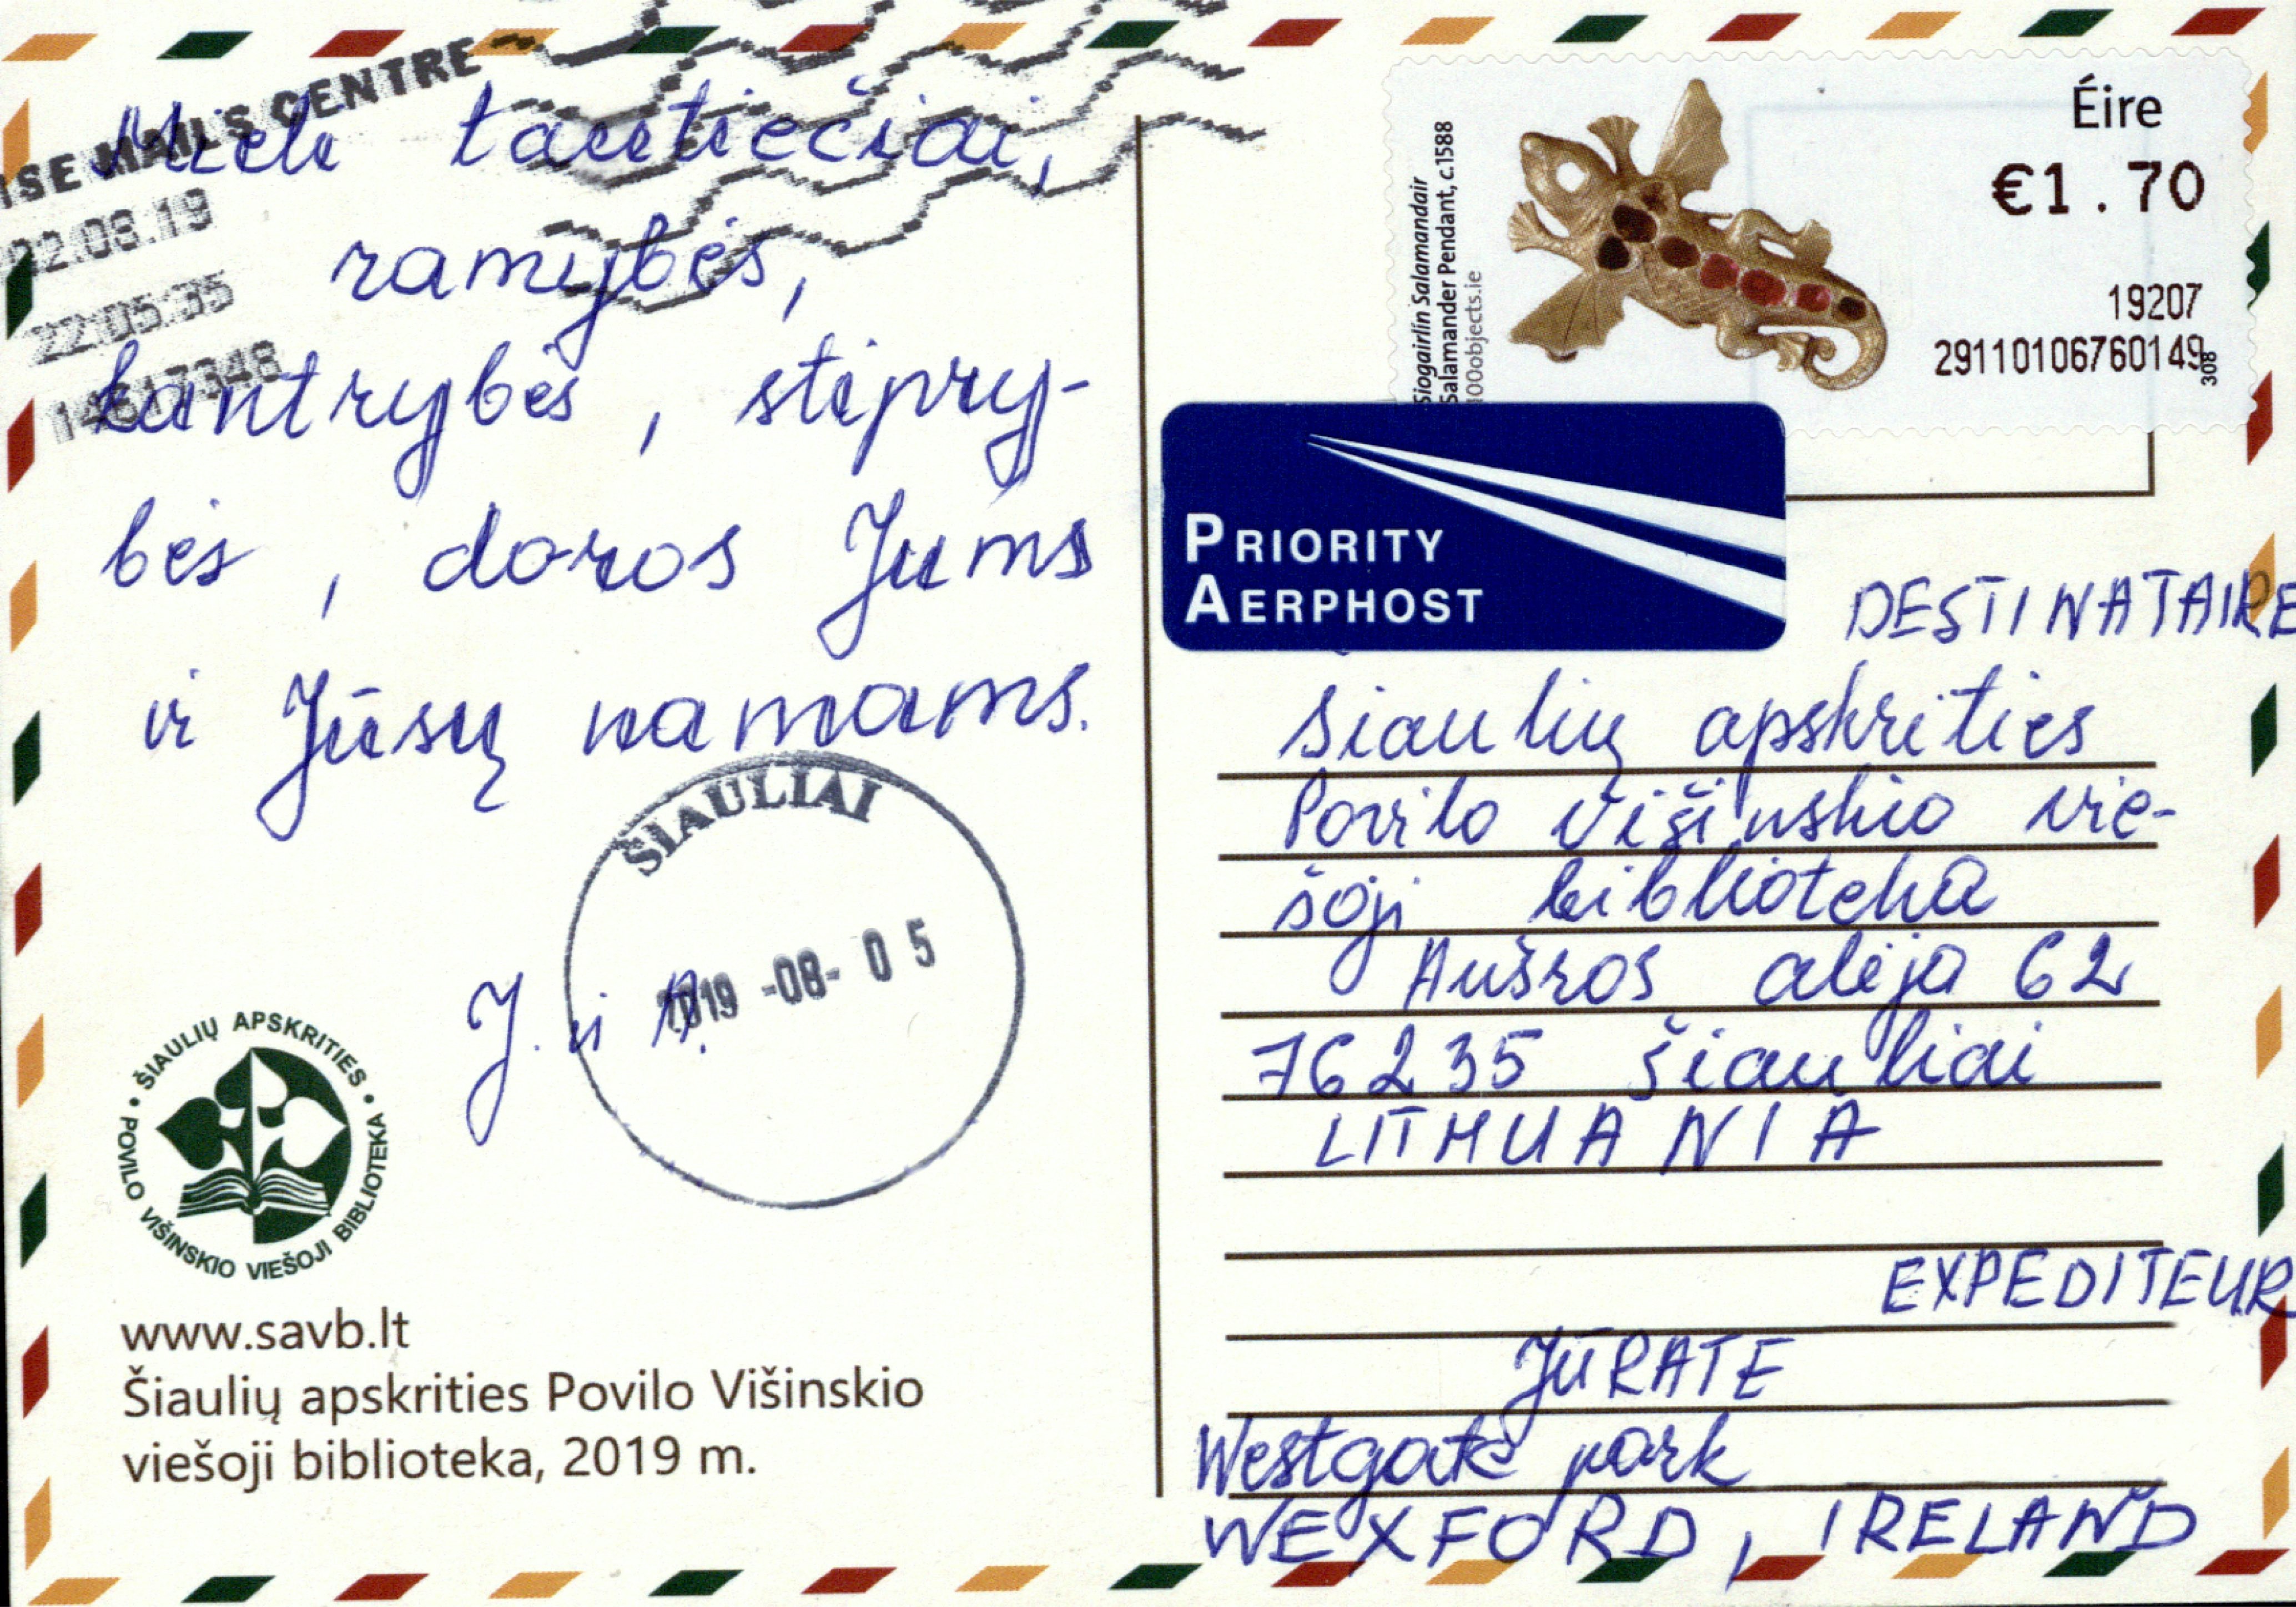 MAILS CENTRE
22:05:35
Mieli tautiečiai,
ramybės,
kantrybės, stipry-
bės, doros Jums
ir Jūsų namams.
J. ir
ŠIAULIAI
2019 -08- 05
ŠIAULIŲ APSKRITIES • POVILO VIŠINSKIO VIEŠOJI BIBLIOTEKA •
www.savb.lt
Šiaulių apskrities Povilo Višinskio
viešoji biblioteka, 2019 m.
Siogairlín Salamandair
Salamander Pendant, c.1588
100objects.ie
Éire
€1.70
19207
29110106760149
308
PRIORITY
AERPHOST
DESTINATAIRE
Šiaulių apskrities
Povilo Višinskio vie-
šoji biblioteka
Aušros alėja 62
76235 Šiauliai
LITHUANIA
EXPEDITEUR
JŪRATE
Westgate park
WEXFORD, IRELAND